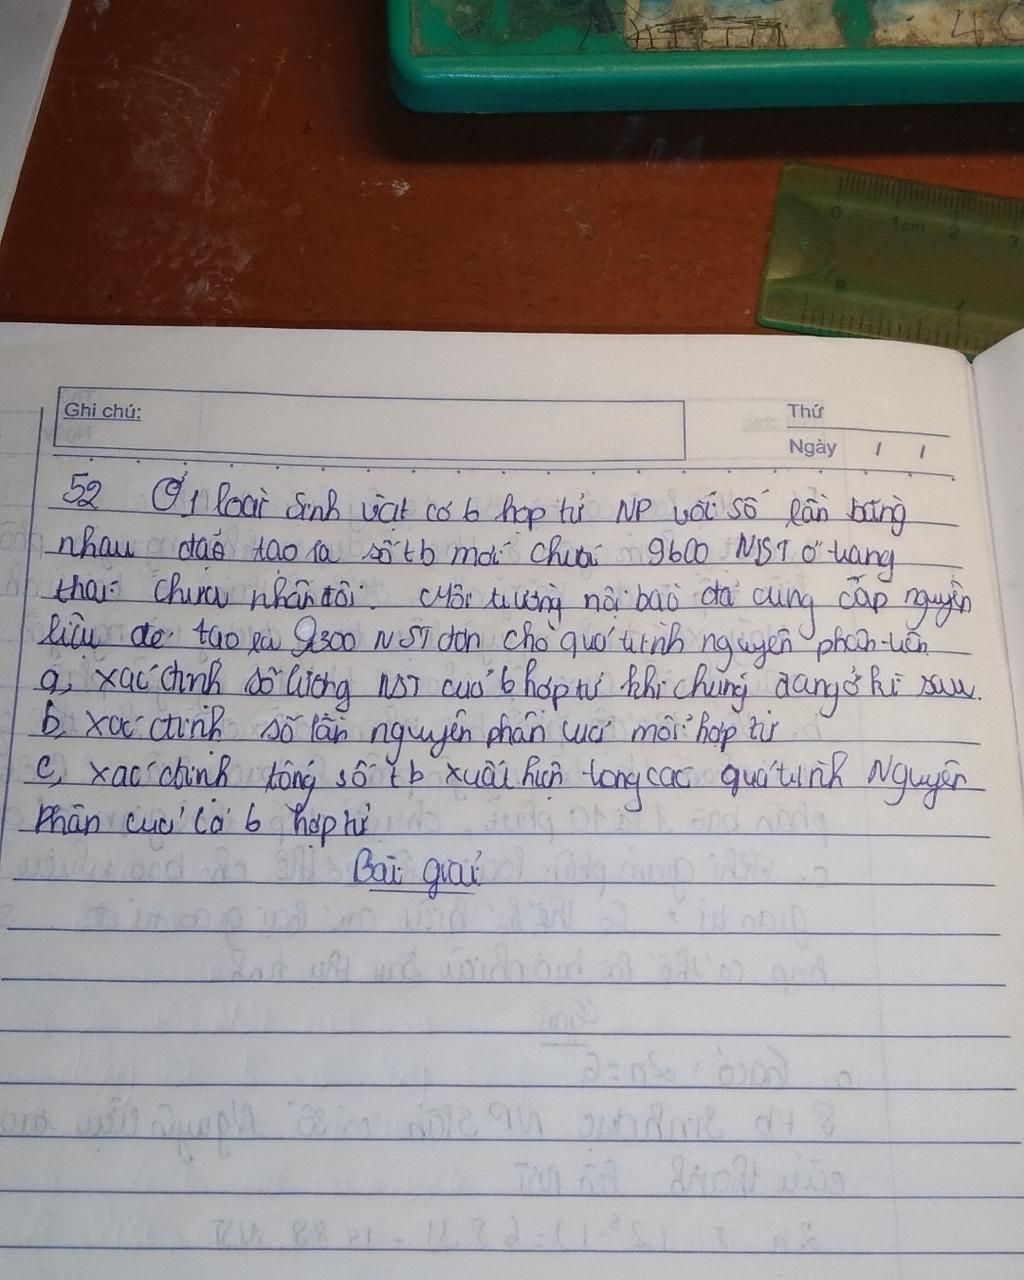 0 1cm 2 3
Ghi chú:
Thứ
Ngày / /
52 Ở 1 loài sinh vật có 6 hợp tử NP với số lần bằng
nhau đaẽ tạo ra số tb mới chứa 9600 NST ở trạng
thái chưa nhân đôi. Môi trường nội bào đã cung cấp nguyên
liệu để tạo ra 9300 NST đơn cho quá trình nguyên phân trên
a, xác định số lượng NST của 6 hợp tử khi chúng đang ở kì sau.
b, xác định số lần nguyên phân của mỗi hợp tử
c, xác định tổng số tb xuất hiện trong các quá trình Nguyên
Phân của cả 6 hợp tử
Bài giải